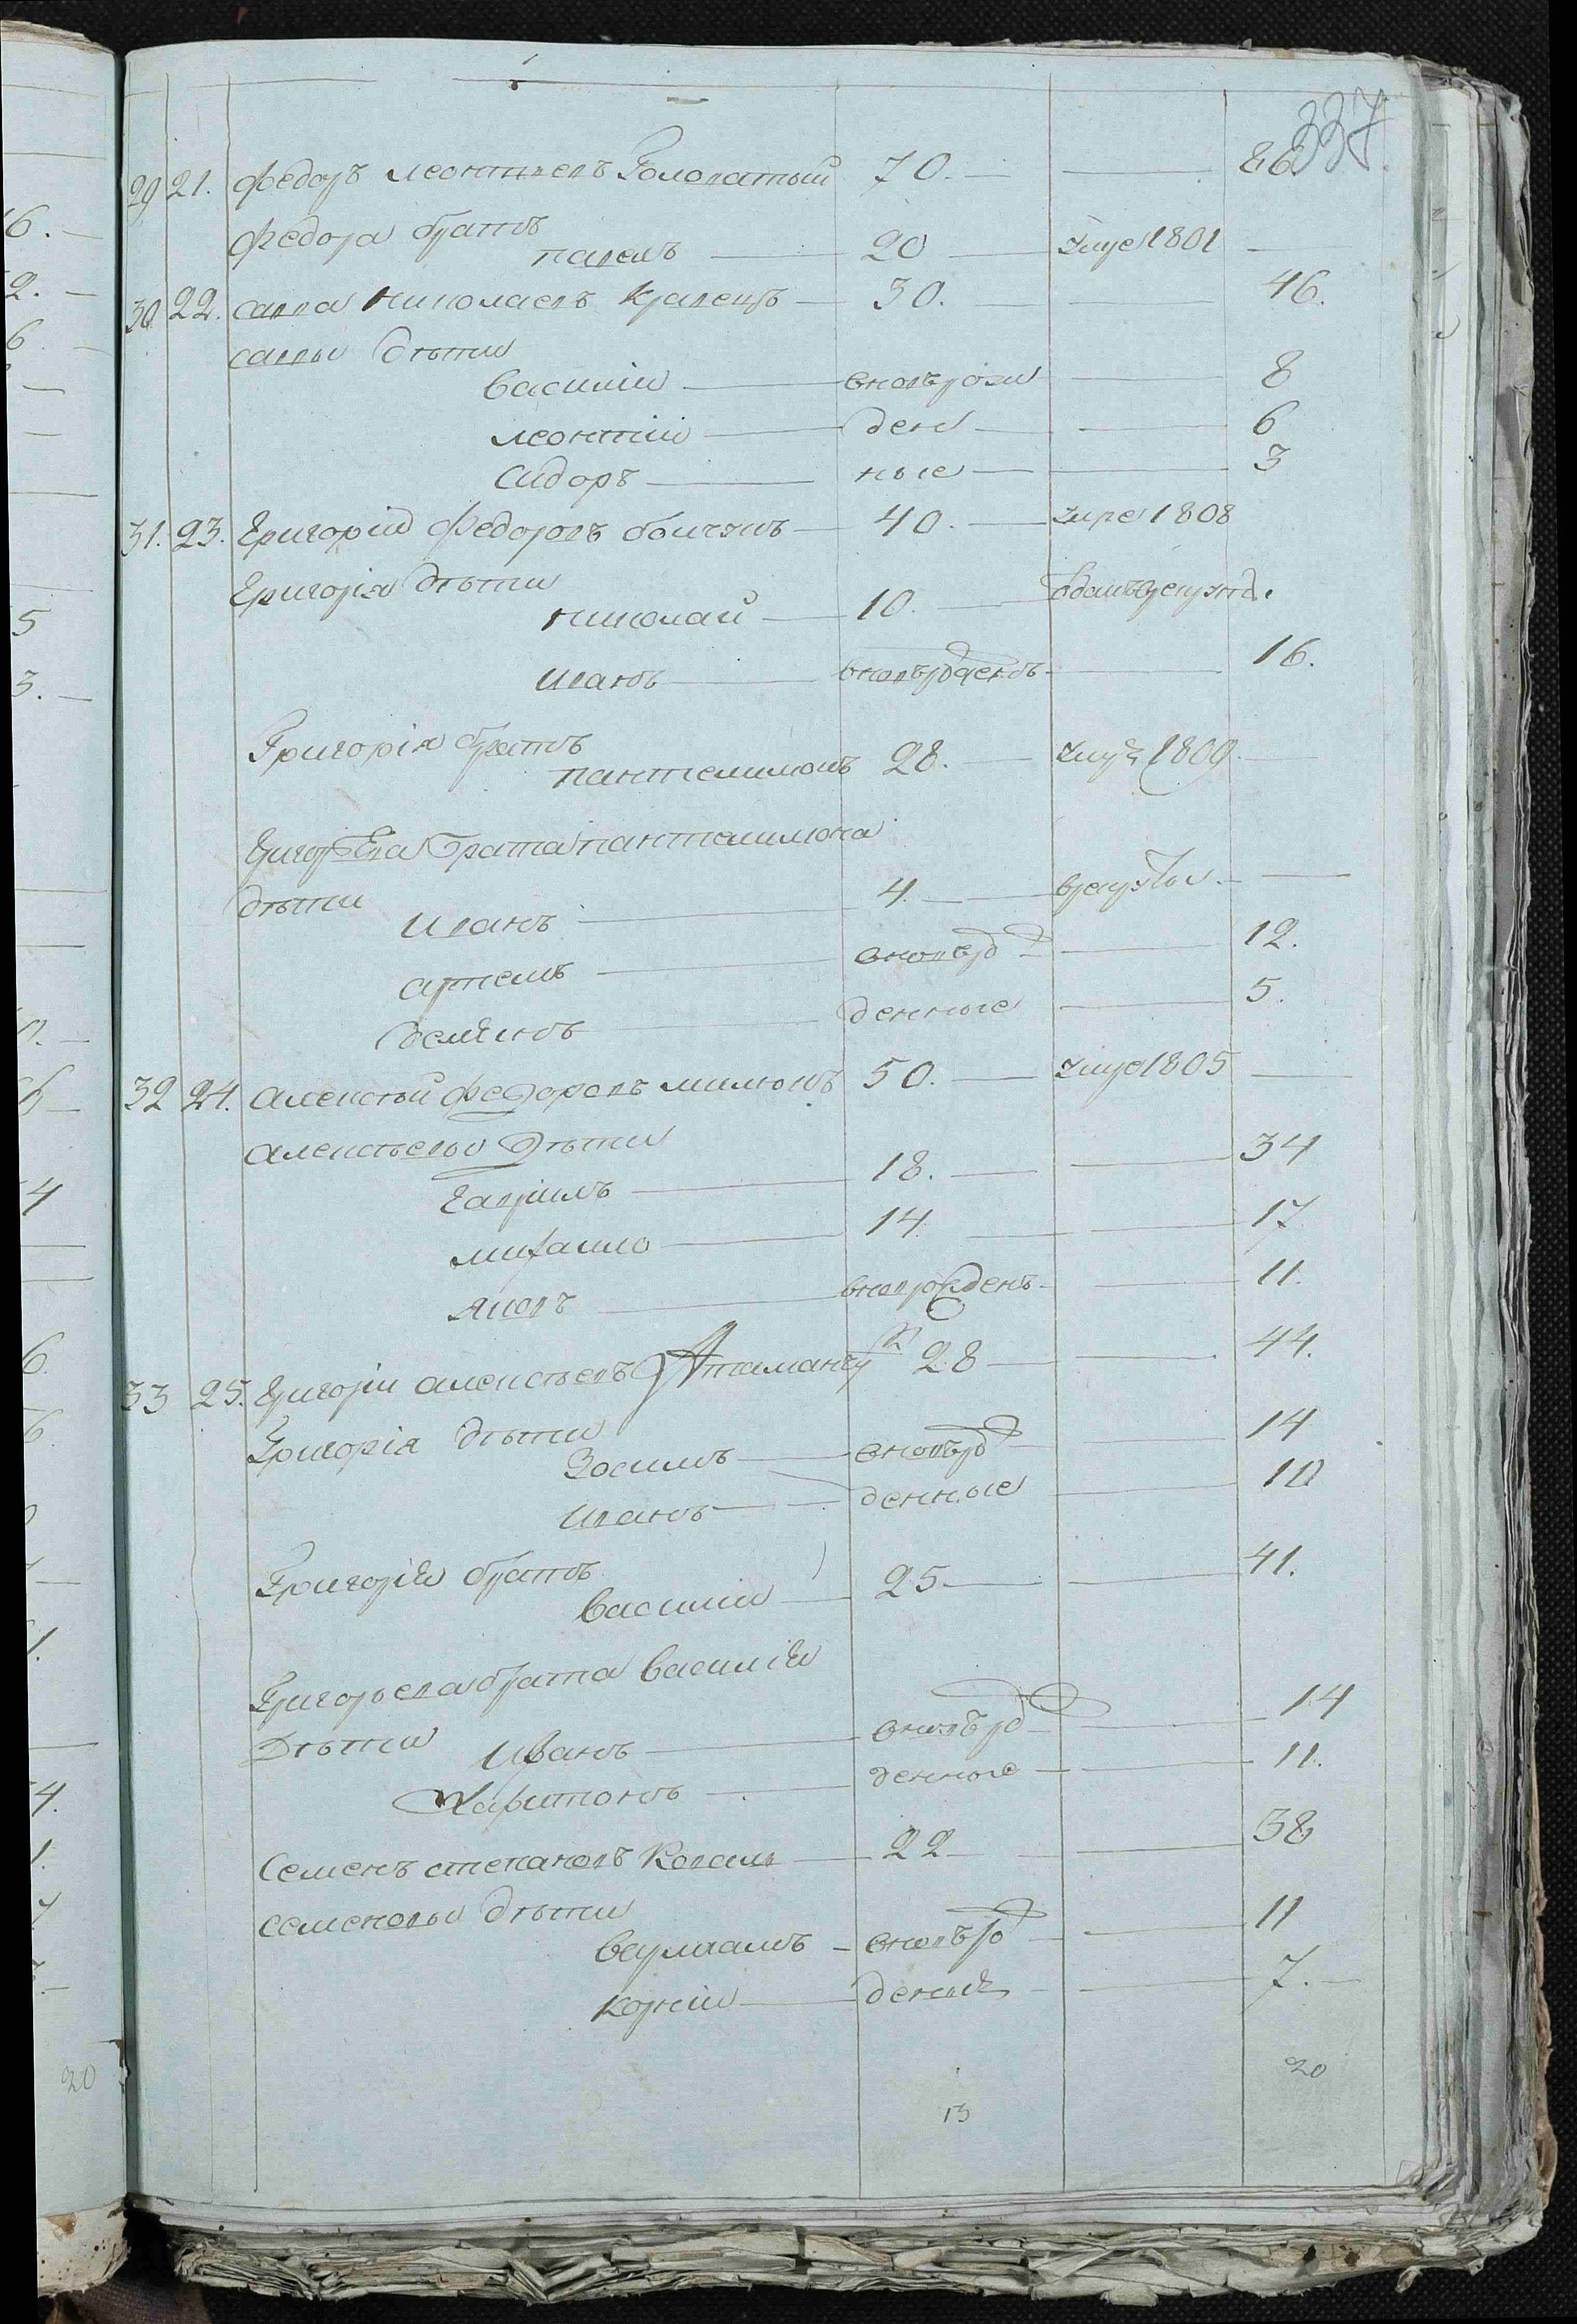 337
29 21. Федоръ Леонтьевъ Головатый 70. 86.
Федора братъ
павелъ 20 умре 1801
30 22. Савва Николаевъ Кравецъ 30. 46.
Саввы дѣти
Василiй вновь рож 8
Леонтiй ден 6
Сидоръ ные 3
31. 23. Григорiй Федоровъ 40. умре 1808
Григорiя дѣти
Николай 10.
Иванъ вновьрожденъ 16.
Григорiя братъ
пантелимонъ 28. умре 1809.
Григорьева брата пантелимона
дѣти
Иванъ 4.
артемъ вновьрож 12.
Демянъ денные 5.
32 24. Алексѣй Федоровъ 50. умре 1805
Алексѣевы дѣти
Гаврилъ 18. 34
михаило 14. 17
Яковъ вноврожденъ 11.
33 25. Григорiй Алексѣевъ Атаманчук 28 44.
Григорiя дѣти
Зосимъ вновьрож 14
Иванъ денные 10
Григорiя братъ
Василiй 25. 41.
Григорьева брата Василiя
Дѣти Иванъ вновьрож 14
Харитонъ денные 11.
Семенъ степановъ Коваль 22 38
Семеновы дѣти
Варлаамъ вновьрож 11
Корнiй денные 7.
13 20